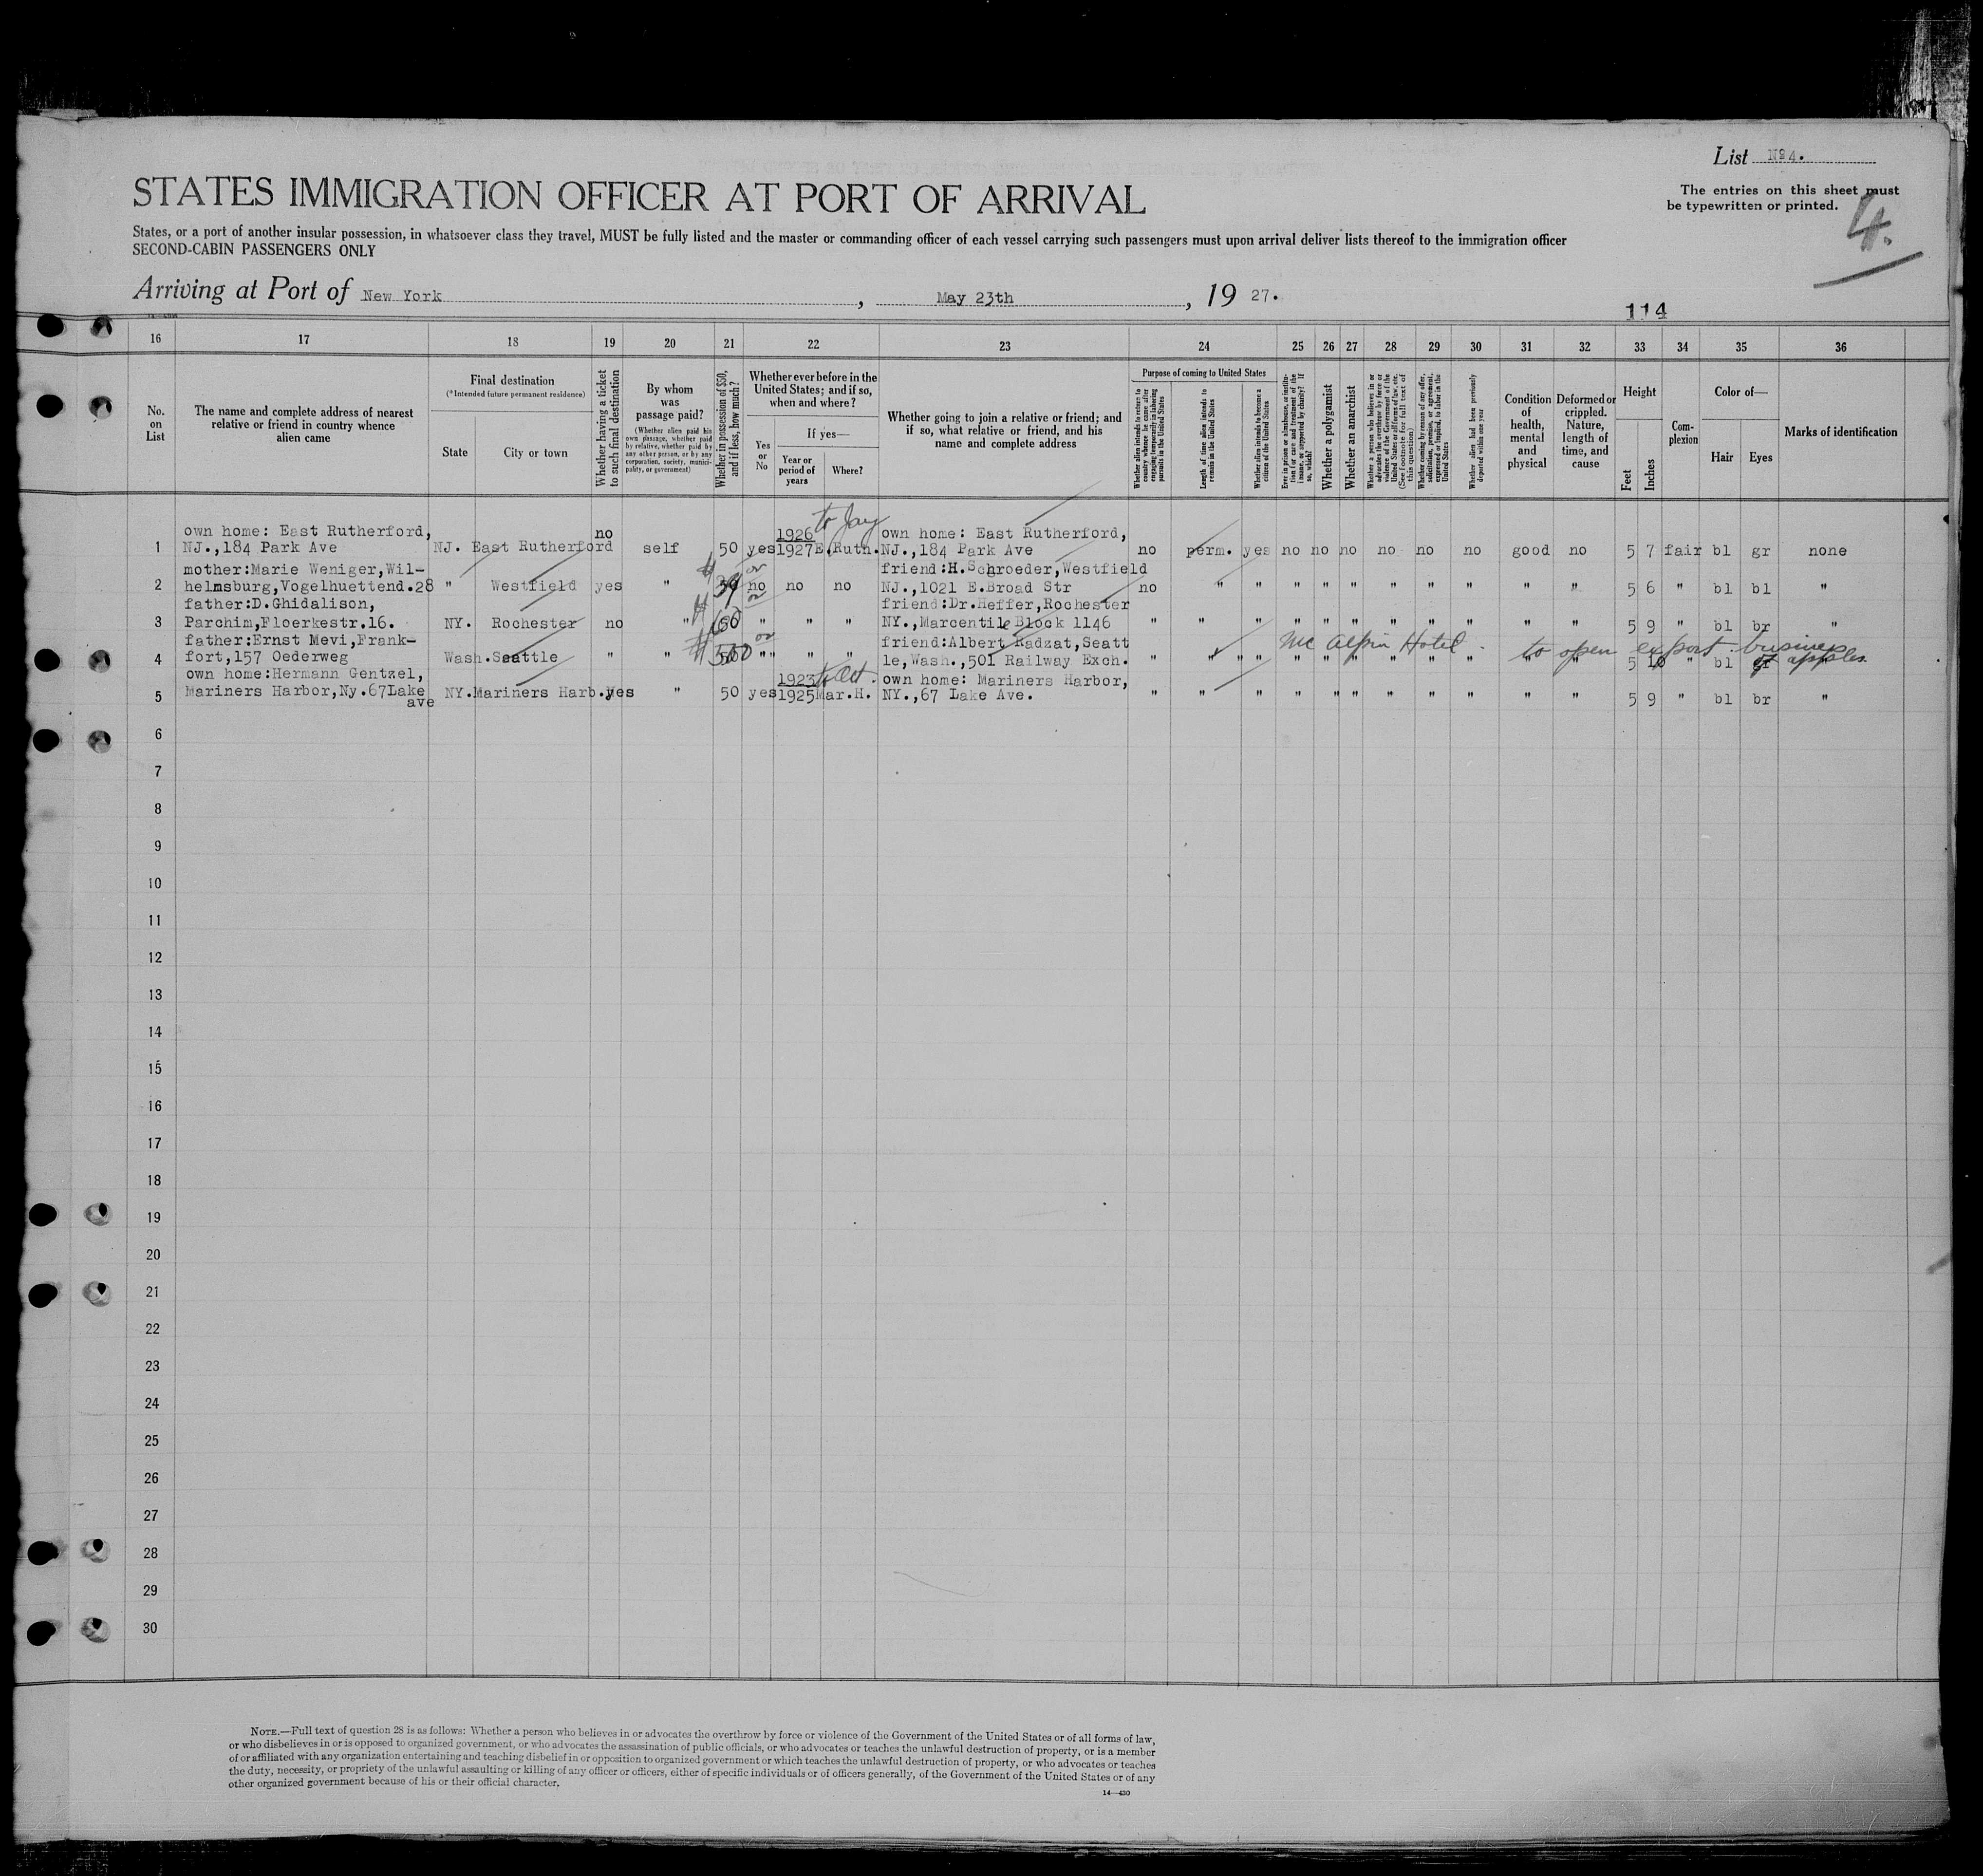 List Nº 4.
The entries on this sheet must
be typewritten or printed.
4.
STATES IMMIGRATION OFFICER AT PORT OF ARRIVAL
States, or a port of another insular possession, in whatsoever class they travel, MUST be fully listed and the master or commanding officer of each vessel carrying such passengers must upon arrival deliver lists thereof to the immigration officer
SECOND-CABIN PASSENGERS ONLY
Arriving at Port of New York, May 23th, 19 27.
114
16 17 18 19 20 21 22 23 24 25 26 27 28 29 30 31 32 33 34 35 36
No. on List
The name and complete address of nearest relative or friend in country whence alien came
Final destination
(*Intended future permanent residence)
State
City or town
Whether having a ticket to such final destination
By whom was passage paid?
(Whether alien paid his own passage, whether paid by relative, whether paid by any other person, or by any corporation, society, municipality, or government)
Whether in possession of $50, and if less, how much?
Whether ever before in the United States; and if so, when and where?
Yes or No
If yes—
Year or period of years
Where?
Whether going to join a relative or friend; and if so, what relative or friend, and his name and complete address
Purpose of coming to United States
Whether alien intends to return to country whence he came after engaging temporarily in laboring pursuits in the United States
Length of time alien intends to remain in the United States
Whether alien intends to become a citizen of the United States
Ever in prison or almshouse, or institution for care and treatment of the insane, or supported by charity? If so, which?
Whether a polygamist
Whether an anarchist
Whether a person who believes in or advocates the overthrow by force or violence of the Government of the United States or all forms of law, etc. (See footnote for full text of this question)
Whether coming by reason of any offer, solicitation, promise, or agreement, expressed or implied, to labor in the United States
Whether alien had been previously deported within one year
Condition of health, mental and physical
Deformed or crippled. Nature, length of time, and cause
Height
Feet
Inches
Complexion
Color of—
Hair
Eyes
Marks of identification
own home: East Rutherford, no 1926 own home: East Rutherford,
1 NJ.,184 Park Ave NJ. East Rutherford self 50 yes 1927 E.Ruth. NJ.,184 Park Ave no perm. yes no no no no no no good no 5 7 fair bl gr none
mother:Marie Weniger,Wil- friend:H.Schroeder,Westfield
2 helmsburg,Vogelhuettend.28 " Westfield yes " no no no NJ.,1021 E.Broad Str no " " " " " " " " " " 5 6 " bl bl "
father:D.Ghidalison, friend:Dr.Heffer,Rochester
3 Parchim,Floerkestr.16. NY. Rochester no " " " " NY.,Marcentile Block 1146 " " " " " " " " " " " 5 9 " bl br "
father:Ernst Mevi,Frank- friend:Albert Radzat,Seatt Mc Alpin Hotel. to open export business
4 fort,157 Oederweg Wash. Seattle " " 500 " " " le,Wash.,501 Railway Exch. " " " " " " " " " " " 5 10 " bl of apples
own home:Hermann Gentzel, 1923 to Oct. own home: Mariners Harbor,
5 Mariners Harbor,Ny.67Lake ave NY. Mariners Harb. yes " 50 yes 1925 Mar.H. NY.,67 Lake Ave. " " " " " " " " " " " 5 9 " bl br "
6
7
8
9
10
11
12
13
14
15
16
17
18
19
20
21
22
23
24
25
26
27
28
29
30
NOTE.—Full text of question 28 is as follows: Whether a person who believes in or advocates the overthrow by force or violence of the Government of the United States or of all forms of law,
or who disbelieves in or is opposed to organized government, or who advocates the assassination of public officials, or who advocates or teaches the unlawful destruction of property, or is a member
of or affiliated with any organization entertaining and teaching disbelief in or opposition to organized government or which teaches the unlawful destruction of property, or who advocates or teaches
the duty, necessity, or propriety of the unlawful assaulting or killing of any officer or officers, either of specific individuals or of officers generally, of the Government of the United States or of any
other organized government because of his or their official character.
14—430